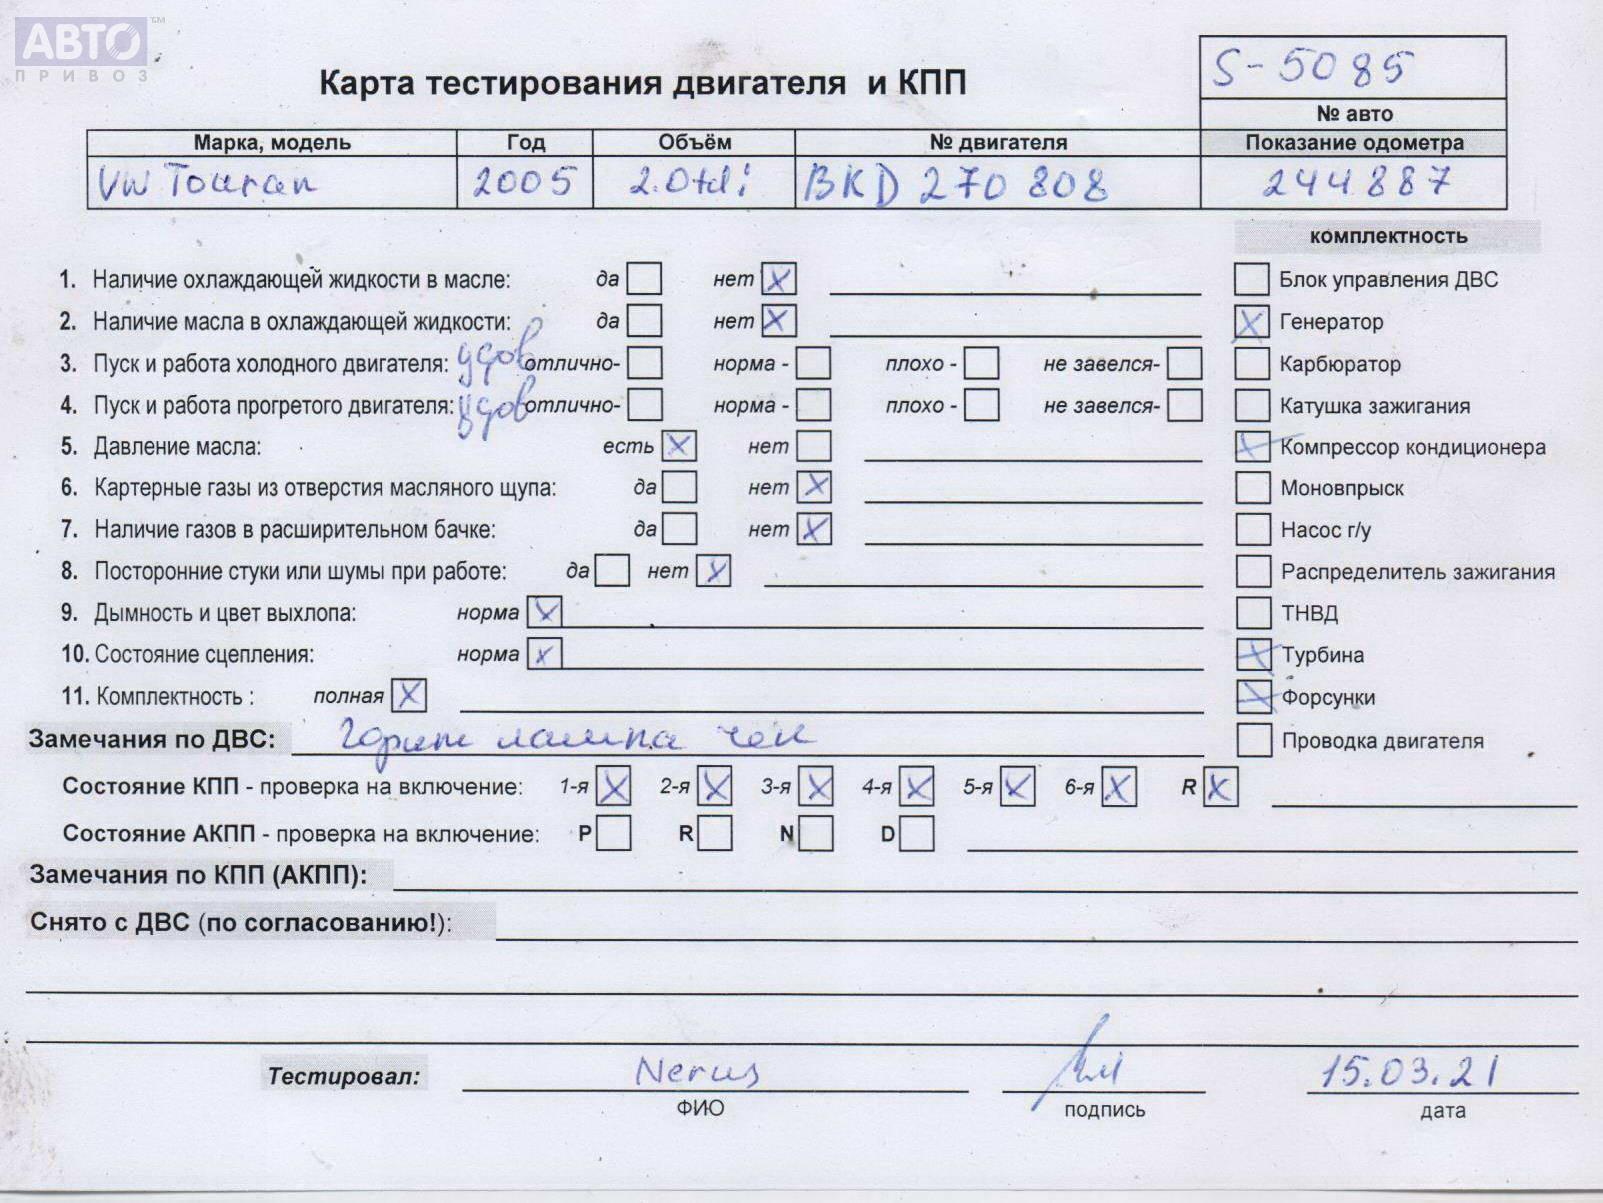 АВТО™
ПРИВОЗ
S-5085
Карта тестирования двигателя и КПП
№ авто
Марка, модель Год Объём № двигателя Показание одометра
VW Touran 2005 2.0tdi BKD 270 808 244887
комплектность
1. Наличие охлаждающей жидкости в масле: да нет X Блок управления ДВС
2. Наличие масла в охлаждающей жидкости: да нет X X Генератор
3. Пуск и работа холодного двигателя: удов отлично- норма - плохо - не завелся- Карбюратор
4. Пуск и работа прогретого двигателя: удов отлично- норма - плохо - не завелся- Катушка зажигания
5. Давление масла: есть X нет X Компрессор кондиционера
6. Картерные газы из отверстия масляного щупа: да нет X Моновпрыск
7. Наличие газов в расширительном бачке: да нет X Насос г/у
8. Посторонние стуки или шумы при работе: да нет X Распределитель зажигания
9. Дымность и цвет выхлопа: норма X ТНВД
10. Состояние сцепления: норма X X Турбина
11. Комплектность : полная X X Форсунки
Замечания по ДВС: Горит лампа чек Проводка двигателя
Состояние КПП - проверка на включение: 1-я X 2-я X 3-я X 4-я X 5-я X 6-я X R X
Состояние АКПП - проверка на включение: P R N D
Замечания по КПП (АКПП):
Снято с ДВС (по согласованию!):
Тестировал: Nerus 15.03.21
ФИО подпись дата